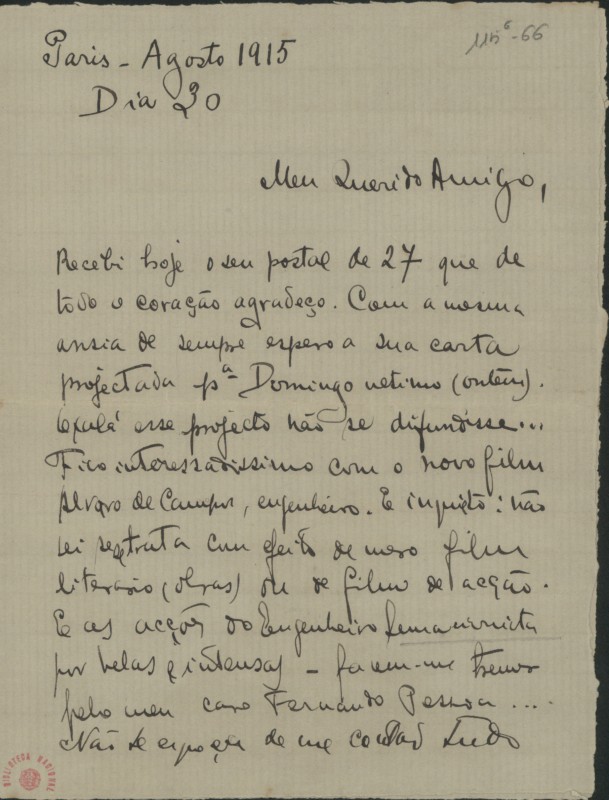 115⁶-66
Paris - Agosto 1915
Dia 30
Meu Querido Amigo,
Recebi hoje o seu postal de 27 que de
todo o coração agradeço. Com a mesma
ansia de sempre espero a sua carta
projectada pª Domingo ultimo (ontem).
Oxalá esse projecto não se difundisse...
Fico interessadissimo com o novo film
Alvaro de Campos, engenheiro. E inquieto: não
sei se trata com efeito de mero film
literario (obras) ou de film de acção.
E as acções do Engenheiro
por belas e intensas - fazem-me tremer
pelo meu caro Fernando Pessoa ....
Não se esqueça de me contar tudo
BIBLIOTECA NACIONAL